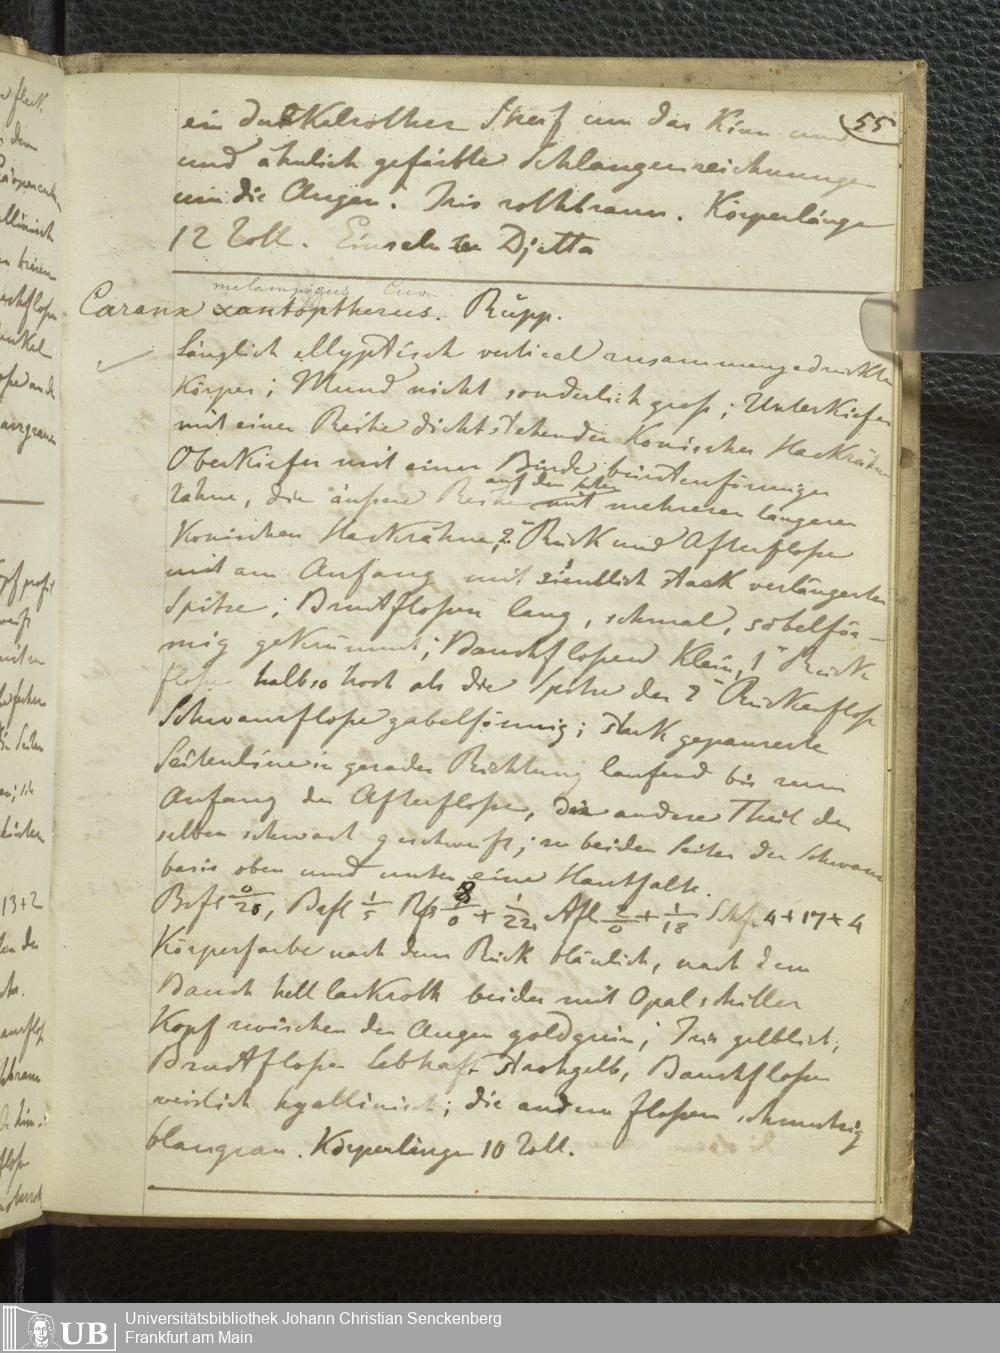 55
ein dunkelrother Streif um das Kinn und
und ähnlich gefärbte Schlangenzeichnungen
um die Augen. Iris rothbraun. Körperlänge
12 Zoll. Einzeln zu Djetta
melampygus Cuv.
Caranx xantopterus. Rüpp.
Länglich ellyptisch vertical zusammengedrückter
Körper; Mund nicht sonderlich groß; Unterkiefer
mit einer Reihe dichtstehender Konischer Hackzähne
Oberkiefer mit einer Binde bürstenförmiger
auf den
Zähne, die äußere Reihe mit mehreren längeren
Konischen Hackzähnen, 2e Rück und Afterfloße
mit am Anfang mit ziemlich stark verlängerter
Spitze; Brustfloßen lang, schmal, säbelför-
mig gekrümmt; Bauchfloßen Klein, 1e Rücken
floße halb so hoch als die Spitze der 2n Rückenfloße
Schwanzfloße gabelförmig; stark gepanzerte
Seitenlinie in gerader Richtung laufend bis zum
Anfang der Afterfloße, der andere Theil der
selben schwach geschweift; zu beiden Seiten der Schwanz
basis oben und unten eine Hautfalte.
Brfl 0/20, Bafl 1/5 Rfl 8/0 + 1/22, Afl 2/0 + 1/18 Schfl 4 + 17 + 4
Körperfarbe nach dem Rück bläulich, nach dem
Bauch hell lackroth beides mit Opalschiller
Kopf zwischen den Augen goldgrün; Iris gelblich;
Brustfloßen lebhaft strohgelb, Bauchfloßen
weislich hyallinisch; die andern Floßen schmutzig
blaugrau. Körperlänge 10 Zoll.
UB
Universitätsbibliothek Johann Christian Senckenberg
Frankfurt am Main